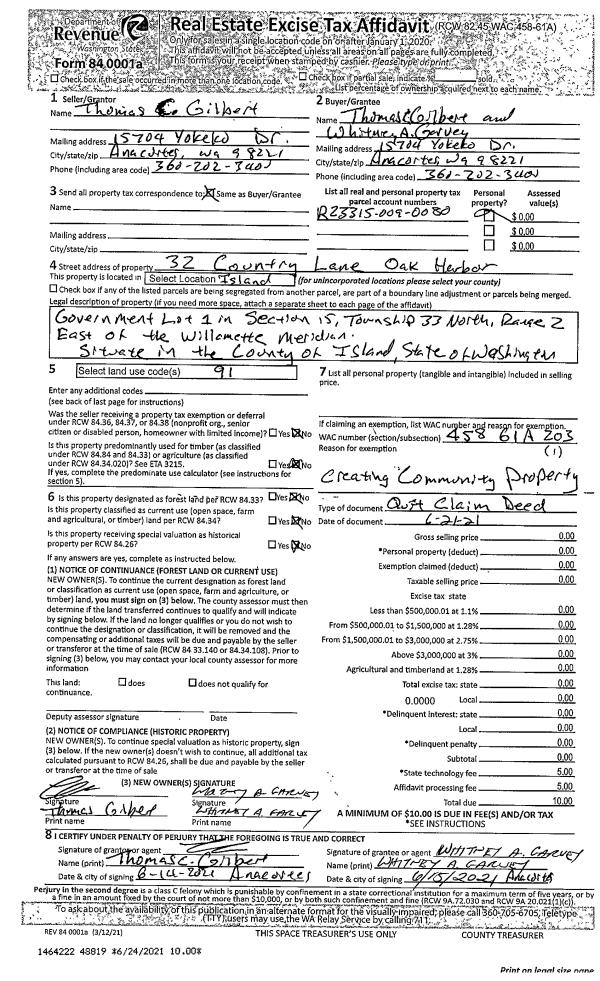 Department of
Revenue
Washington State
Form 84 0001a
Real Estate Excise Tax Affidavit (RCW 82.45 WAC 458-61A)
Only for sales in a single location code on or after January 1, 2020.
This affidavit will not be accepted unless all areas on all pages are fully completed.
This form is your receipt when stamped by cashier. Please type or print.
Check box if the sale occurred in more than one location code.
Check box if partial sale, indicate % sold.
List percentage of ownership acquired next to each name.
1 Seller/Grantor
Name Thomas C Gilbert
Mailing address 15704 Yokeko Dr.
City/state/zip Anacortes, Wa 98221
Phone (including area code) 360-202-3400
2 Buyer/Grantee
Name Thomas C Gilbert and
Whitney A. Garvey
Mailing address 15704 Yokeko Dr.
City/state/zip Anacortes, Wa 98221
Phone (including area code) 360-202-3400
3 Send all property tax correspondence to: Same as Buyer/Grantee
Name
Mailing address
City/state/zip
List all real and personal property tax
parcel account numbers
Personal
property?
Assessed
value(s)
R23315-009-0080
$ 0.00
$ 0.00
$ 0.00
4 Street address of property 32 Country Lane Oak Harbor
This property is located in Select Location Island (for unincorporated locations please select your county)
Check box if any of the listed parcels are being segregated from another parcel, are part of a boundary line adjustment or parcels being merged.
Legal description of property (if you need more space, attach a separate sheet to each page of the affidavit)
Government Lot 1 in Section 15, Township 33 North, Range 2
East of the Willamette Meridian.
Situate in the County of Island, State of Washington
5 Select land use code(s) 91
Enter any additional codes
(see back of last page for instructions)
Was the seller receiving a property tax exemption or deferral
under RCW 84.36, 84.37, or 84.38 (nonprofit org., senior
citizen or disabled person, homeowner with limited income)? Yes No
Is this property predominantly used for timber (as classified
under RCW 84.84 and 84.33) or agriculture (as classified
under RCW 84.34.020)? See ETA 3215. Yes No
If yes, complete the predominate use calculator (see instructions for
section 5).
6 Is this property designated as forest land per RCW 84.33? Yes No
Is this property classified as current use (open space, farm
and agricultural, or timber) land per RCW 84.34? Yes No
Is this property receiving special valuation as historical
property per RCW 84.26? Yes No
If any answers are yes, complete as instructed below.
(1) NOTICE OF CONTINUANCE (FOREST LAND OR CURRENT USE)
NEW OWNER(S): To continue the current designation as forest land
or classification as current use (open space, farm and agriculture, or
timber) land, you must sign on (3) below. The county assessor must then
determine if the land transferred continues to qualify and will indicate
by signing below. If the land no longer qualifies or you do not wish to
continue the designation or classification, it will be removed and the
compensating or additional taxes will be due and payable by the seller
or transferor at the time of sale (RCW 84 33.140 or 84.34.108). Prior to
signing (3) below, you may contact your local county assessor for more
information
This land: does does not qualify for
continuance.
Deputy assessor signature Date
(2) NOTICE OF COMPLIANCE (HISTORIC PROPERTY)
NEW OWNER(S): To continue special valuation as historic property, sign
(3) below. If the new owner(s) doesn't wish to continue, all additional tax
calculated pursuant to RCW 84.26, shall be due and payable by the seller
or transferor at the time of sale
(3) NEW OWNER(S) SIGNATURE
WHITNEY A. GARVEY
Signature Signature
Thomas Gilbert WHITNEY A. GARVEY
Print name Print name
7 List all personal property (tangible and intangible) included in selling
price.
If claiming an exemption, list WAC number and reason for exemption.
WAC number (section/subsection) 458 61A 203
(1)
Reason for exemption
Creating Community Property
Type of document Quit Claim Deed
Date of document 6-21-21
Gross selling price 0.00
*Personal property (deduct) 0.00
Exemption claimed (deduct) 0.00
Taxable selling price 0.00
Excise tax state
Less than $500,000.01 at 1.1% 0.00
From $500,000.01 to $1,500,000 at 1.28% 0.00
From $1,500,000.01 to $3,000,000 at 2.75% 0.00
Above $3,000,000 at 3% 0.00
Agricultural and timberland at 1.28% 0.00
Total excise tax: state 0.00
0.0000 Local 0.00
*Delinquent interest: state 0.00
Local 0.00
*Delinquent penalty 0.00
Subtotal 0.00
*State technology fee 5.00
Affidavit processing fee 5.00
Total due 10.00
A MINIMUM OF $10.00 IS DUE IN FEE(S) AND/OR TAX
*SEE INSTRUCTIONS
8 I CERTIFY UNDER PENALTY OF PERJURY THAT THE FOREGOING IS TRUE AND CORRECT
Signature of grantor or agent
Name (print) Thomas C. Gilbert
Date & city of signing 6-14-2021 Anacortes
Signature of grantee or agent WHITNEY A. GARVEY
Name (print) WHITNEY A. GARVEY
Date & city of signing 6/15/2021 Anacortes
Perjury in the second degree is a class C felony which is punishable by confinement in a state correctional institution for a maximum term of five years, or by
a fine in an amount fixed by the court of not more than $10,000, or by both such confinement and fine (RCW 9A.72.030 and RCW 9A 20.021(1)(c)).
To ask about the availability of this publication in an alternate format for the visually impaired, please call 360-705-6705. Teletype
(TTY) users may use the WA Relay Service by calling 711.
REV 84 0001a (3/12/21) THIS SPACE TREASURER'S USE ONLY COUNTY TREASURER
1464222 48819 *6/24/2021 10.00*
Print on legal size page